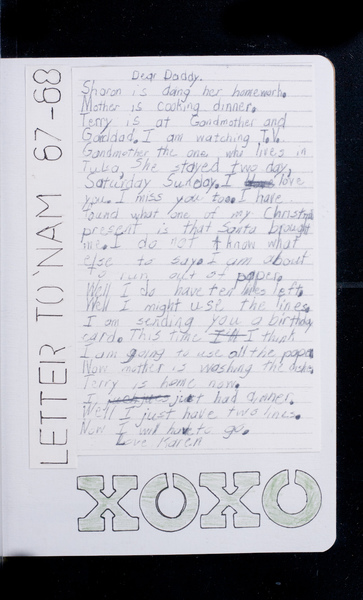 LETTER TO 'NAM 67-68
Dear Daddy.
Sharon is doing her homework.
Mother is cooking dinner.
Terry is at Gandmother and
Gandad. I am watching T.V.
Gandmother the one who lives in
Tulsa, She stayed two day,
Saturday Sunday. I love
you. I miss you too. I have
found what one of my Christmas
present is that Santa brought
me. I do not know what
else to say. I am about
to run out of paper.
Well I do have ten lines left.
Well I might use the lines.
I am sending you a birthday
card. This time I'll I think
I am going to use all the paper
Now mother is washing the dishes
Terry is home now.
I just had dinner.
Well I just have two lines.
Now I will have to go.
Love Karen
XOXO